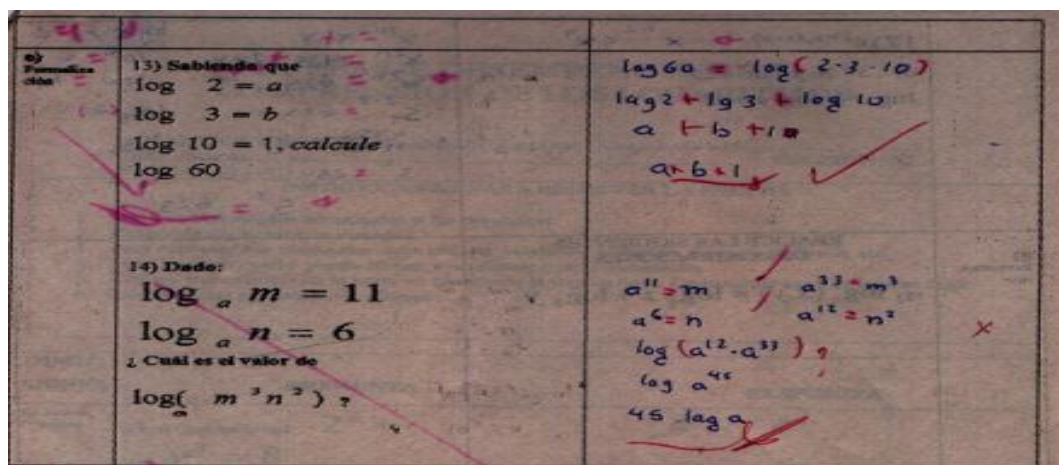 e)
Formaliza
ción
13) Sabiendo que
log 2 = a
log 3 = b
log 10 = 1, calcule
log 60
log 60 = log( 2 · 3 · 10 )
log 2 + lg 3 + log 10
a + b + 1
a + b + 1
14) Dado:
log a m = 11
log a n = 6
¿ Cuál es el valor de
log( m ³ n ² ) ?
a
a¹¹ = m a³³ = m³
a⁶ = n a¹² = n²
log (a¹² · a³³ ) ?
log a⁴⁵
45 log a